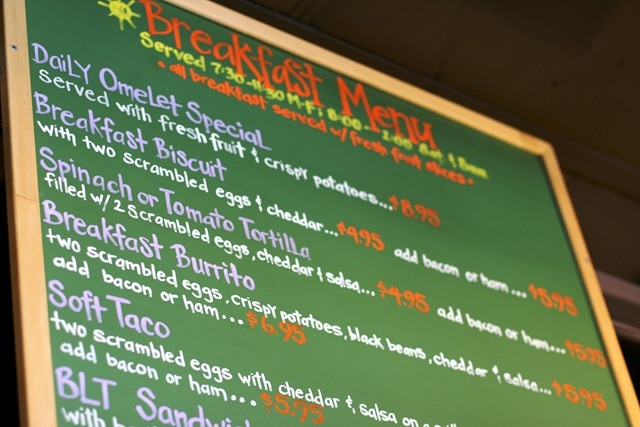 Breakfast Menu
Served 7:30-11:30 M-F; 8:00-2:00 Sat & Sun
• all breakfast served w/ fresh fruit slices •
Daily Omelet Special
served with fresh fruit & crispy potatoes...$8.95
Breakfast Biscuit
with two scrambled eggs & cheddar...$4.95 add bacon or ham...$5.95
Spinach or Tomato Tortilla
filled w/ 2 scrambled eggs, cheddar & salsa...$4.95 add bacon or ham...$5.95
Breakfast Burrito
two scrambled eggs, crispy potatoes, black beans, cheddar & salsa...$5.95
add bacon or ham...$6.95
Soft Taco
two scrambled eggs with cheddar & salsa on a
add bacon or ham...$5.95
BLT Sandwich
with